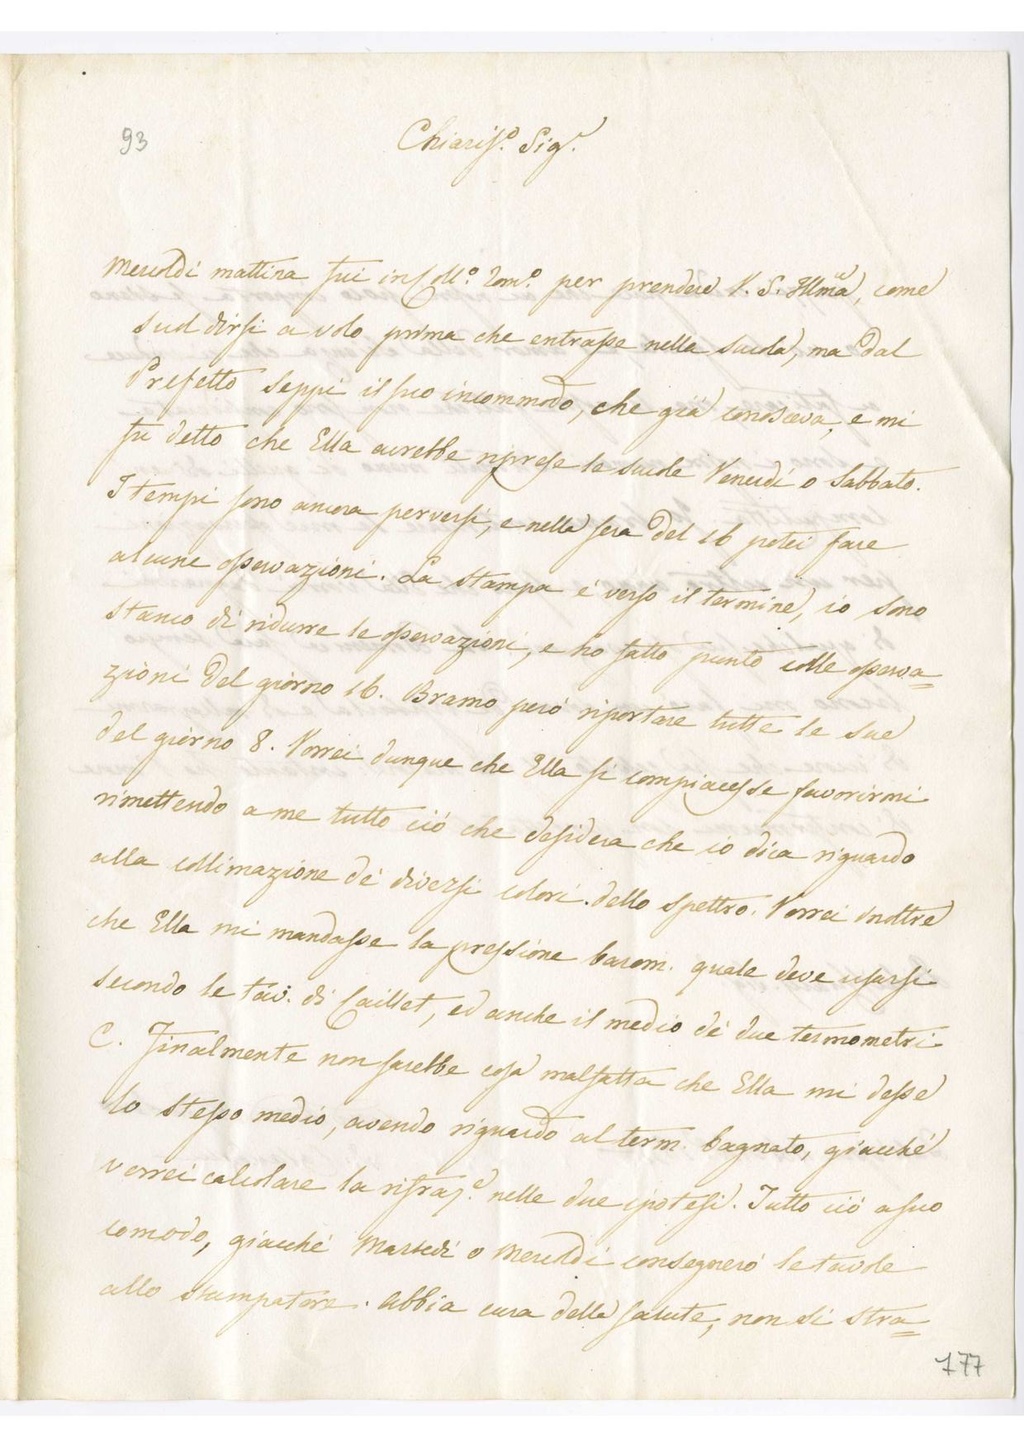 93
Chiariss.o Sig.r
Mercoldì mattina fui in Coll.o Rom.o per prendere V. S. Illma, come
suol dirsi a volo prima che entrasse nella scuola, ma dal
Prefetto seppi il suo incommodo, che già conosceva, e mi
fu detto che Ella avrebbe riprese le scuole Venerdì o Sabbato.
I tempi sono ancora perversi, e nella sera del 16 potei fare
alcune osservazioni. La stampa è verso il termine, io sono
stanco di ridurre le osservazioni, e ho fatto punto colle osserva=
zioni del giorno 16. Bramo però riportare tutte le sue
del giorno 8. Vorrei dunque che Ella si compiacesse favorirmi
rimettendo a me tutto ciò che desidera che io dica riguardo
alla collimazione de' diversi colori dello spettro. Vorrei inoltre
che Ella mi mandasse la pressione barom. quale deve usarsi
secondo le tav. di Caillet, ed anche il medio de' due termometri
C. Finalmente non sarebbe cosa malfatta che Ella mi desse
lo stesso medio, avendo riguardo al term. bagnato, giacché
vorrei calcolare la rifraz.e nelle due ipotesi. Tutto ciò a suo
comodo, giacché Martedì o Mercoldì consegnerò le tavole
allo stampatore. Abbia cura della salute, non si stra=
177